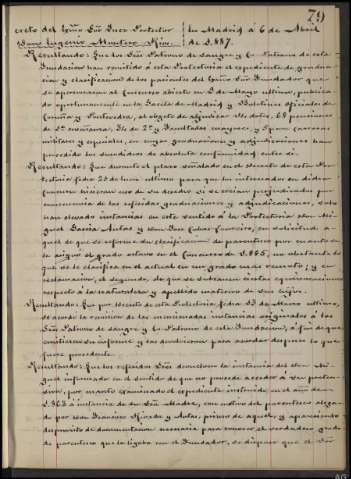 79
creto del Exmo Sñr Juez Protector
Dono Eugenio Montero Rios.
En Madrid á 6 de Abril
de 1.887.
Resultando: Que los Sñr Patronos de Sangre y Co Patrono de esta
Fundacion han remitido á esta Protectoria el espediente de gradua-
cion y clasificacion de los parientes del Exmo Sñr Fundador que
se aprovecharon al Concurso abierto en 2 de Mayo ultimo, publica-
do oportunamente en la Gaceta de Madrid y Boletines oficiales de
Coruña y Pontevedra, al objeto de adjudicar 14 dotes, 68 pensiones
de 1ª enseñanza, 36 de 2ª y Facultades mayores, y 8 para carreras
militares y especiales, en cuyas graduaciones y adjudicaciones han
procedido los susodichos de absoluta conformidad entre si.
Resultando: Que durante el plazo señalado en el decreto de esta Pro-
tectoria fecha 25 de ultimo para que los interesados en dicho
hicieran uso de su derecho si se creian perjudicados por
consecuencia de las referidas graduaciones y adjudicaciones, solo
han elevado instancias en este sentido á la Protectoria don Mi-
guel Garcia Aulas y don José en solicitud a-
quel de que se reforme su clasificacion de parentesco por cuanto se
le asignó el grado octavo en el Concurso de 1.885, no obstante lo
que se le clasifica en el actual en un grado mas remoto; y en
reclamacion, el segundo, de que se subsanen ciertas equivocaciones
respecto á la naturaleza y apellido materno de sus hijos.
Resultando: Que por decreto de esta Protectoria, fecha 23 de Marzo ultimo,
se acordó la remision de las mencionadas instancias originales á los
Sñr Patronos de Sangre y Co Patrono de esta Fundacion, á fin de que
emitiesen su informe y las devolvieran para acordar despues lo que
fuere procedente.
Resultando: Que los referidos Sñr devolvieron la instancia del don Mi-
guel informada en el sentido de que no procede acceder á su preten-
sion, por cuanto examinado el expediente instruido en el año de
1.862 á instancia de su Sra Madre, con motivo del parentesco alega-
do por don Francisco y Aulas, primo de aquel, y apareciendo
desprovisto de documentacion necesaria para conocer el verdadero grado
de parentesco que le ligaba con el Fundador, se dispuso que el Sñr